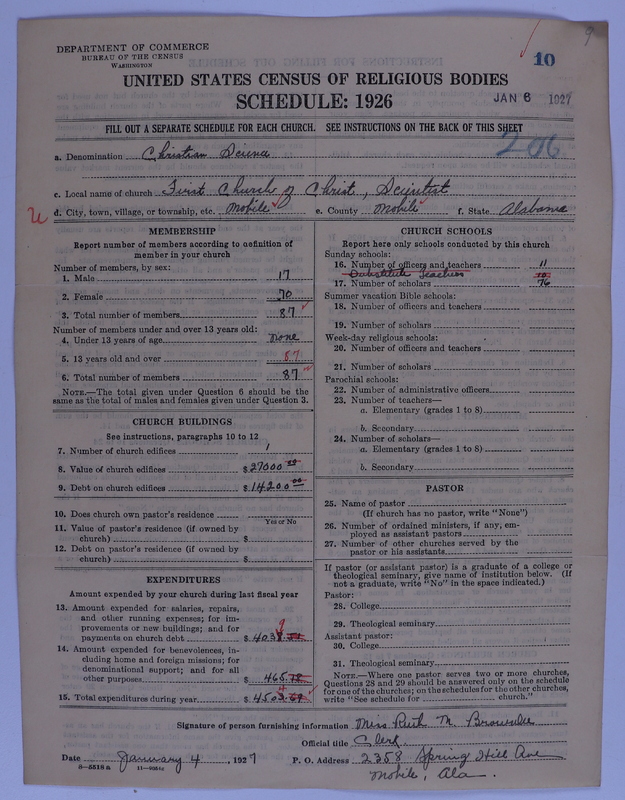 9
10
DEPARTMENT OF COMMERCE
BUREAU OF THE CENSUS
WASHINGTON
UNITED STATES CENSUS OF RELIGIOUS BODIES
SCHEDULE: 1926
JAN 6 1927
FILL OUT A SEPARATE SCHEDULE FOR EACH CHURCH. SEE INSTRUCTIONS ON THE BACK OF THIS SHEET
206
a. Denomination Christian Science
c. Local name of church First Church of Christ, Scientist
d. City, town, village, or township, etc. Mobile e. County Mobile f. State Alabama
MEMBERSHIP
Report number of members according to definition of
member in your church
Number of members, by sex:
1. Male 17
2. Female 70
3. Total number of members 87
Number of members under and over 13 years old:
4. Under 13 years of age none
5. 13 years old and over 87
6. Total number of members 87
NOTE.—The total given under Question 6 should be the
same as the total of males and females given under Question 3.
CHURCH BUILDINGS
See instructions, paragraphs 10 to 12
7. Number of church edifices 1
8. Value of church edifices $ 27000 00
9. Debt on church edifices $ 14200 00
10. Does church own pastor's residence
Yes or No
11. Value of pastor's residence (if owned by
church) $
12. Debt on pastor's residence (if owned by
church) $
EXPENDITURES
Amount expended by your church during last fiscal year
13. Amount expended for salaries, repairs,
and other running expenses; for im-
provements or new buildings; and for
payments on church debt $ 4038
9
14. Amount expended for benevolences, in-
cluding home and foreign missions; for
denominational support; and for all
other purposes $ 465.
15. Total expenditures during year $ 4503
4
CHURCH SCHOOLS
Report here only schools conducted by this church
Sunday schools:
16. Number of officers and teachers 11
Substitute Teachers 10
17. Number of scholars 76
Summer vacation Bible schools:
18. Number of officers and teachers
19. Number of scholars
Week-day religious schools:
20. Number of officers and teachers
21. Number of scholars
Parochial schools:
22. Number of administrative officers
23. Number of teachers—
a. Elementary (grades 1 to 8)
b. Secondary
24. Number of scholars—
a. Elementary (grades 1 to 8)
b. Secondary
PASTOR
25. Name of pastor
(If church has no pastor, write "None")
26. Number of ordained ministers, if any, em-
ployed as assistant pastors
27. Number of other churches served by the
pastor or his assistants
If pastor (or assistant pastor) is a graduate of a college or
theological seminary, give name of institution below. (If
not a graduate, write "No" in the space indicated.)
Pastor:
28. College
29. Theological seminary
Assistant pastor:
30. College
31. Theological seminary
NOTE.—Where one pastor serves two or more churches,
Questions 28 and 29 should be answered only on the schedule
for one of the churches; on the schedules for the other churches,
write "See schedule for church."
Signature of person furnishing information Miss Ruth M.
Official title Clerk
Date January 4, 1927 P. O. Address 2358 Spring Hill Ave
8—5518a 11—9354a
Mobile, Ala.